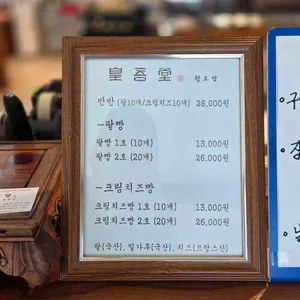 皇吾堂 황오당
반반 (팥10개/크림치즈10개) 26,000원
-팥빵
팥빵 1호 (10개) 13,000원
팥빵 2호 (20개) 26,000원
-크림치즈빵
크림치즈빵 1호 (10개) 13,000원
크림치즈빵 2호 (20개) 26,000원
팥(국산), 밀가루(국산), 치즈(프랑스산)